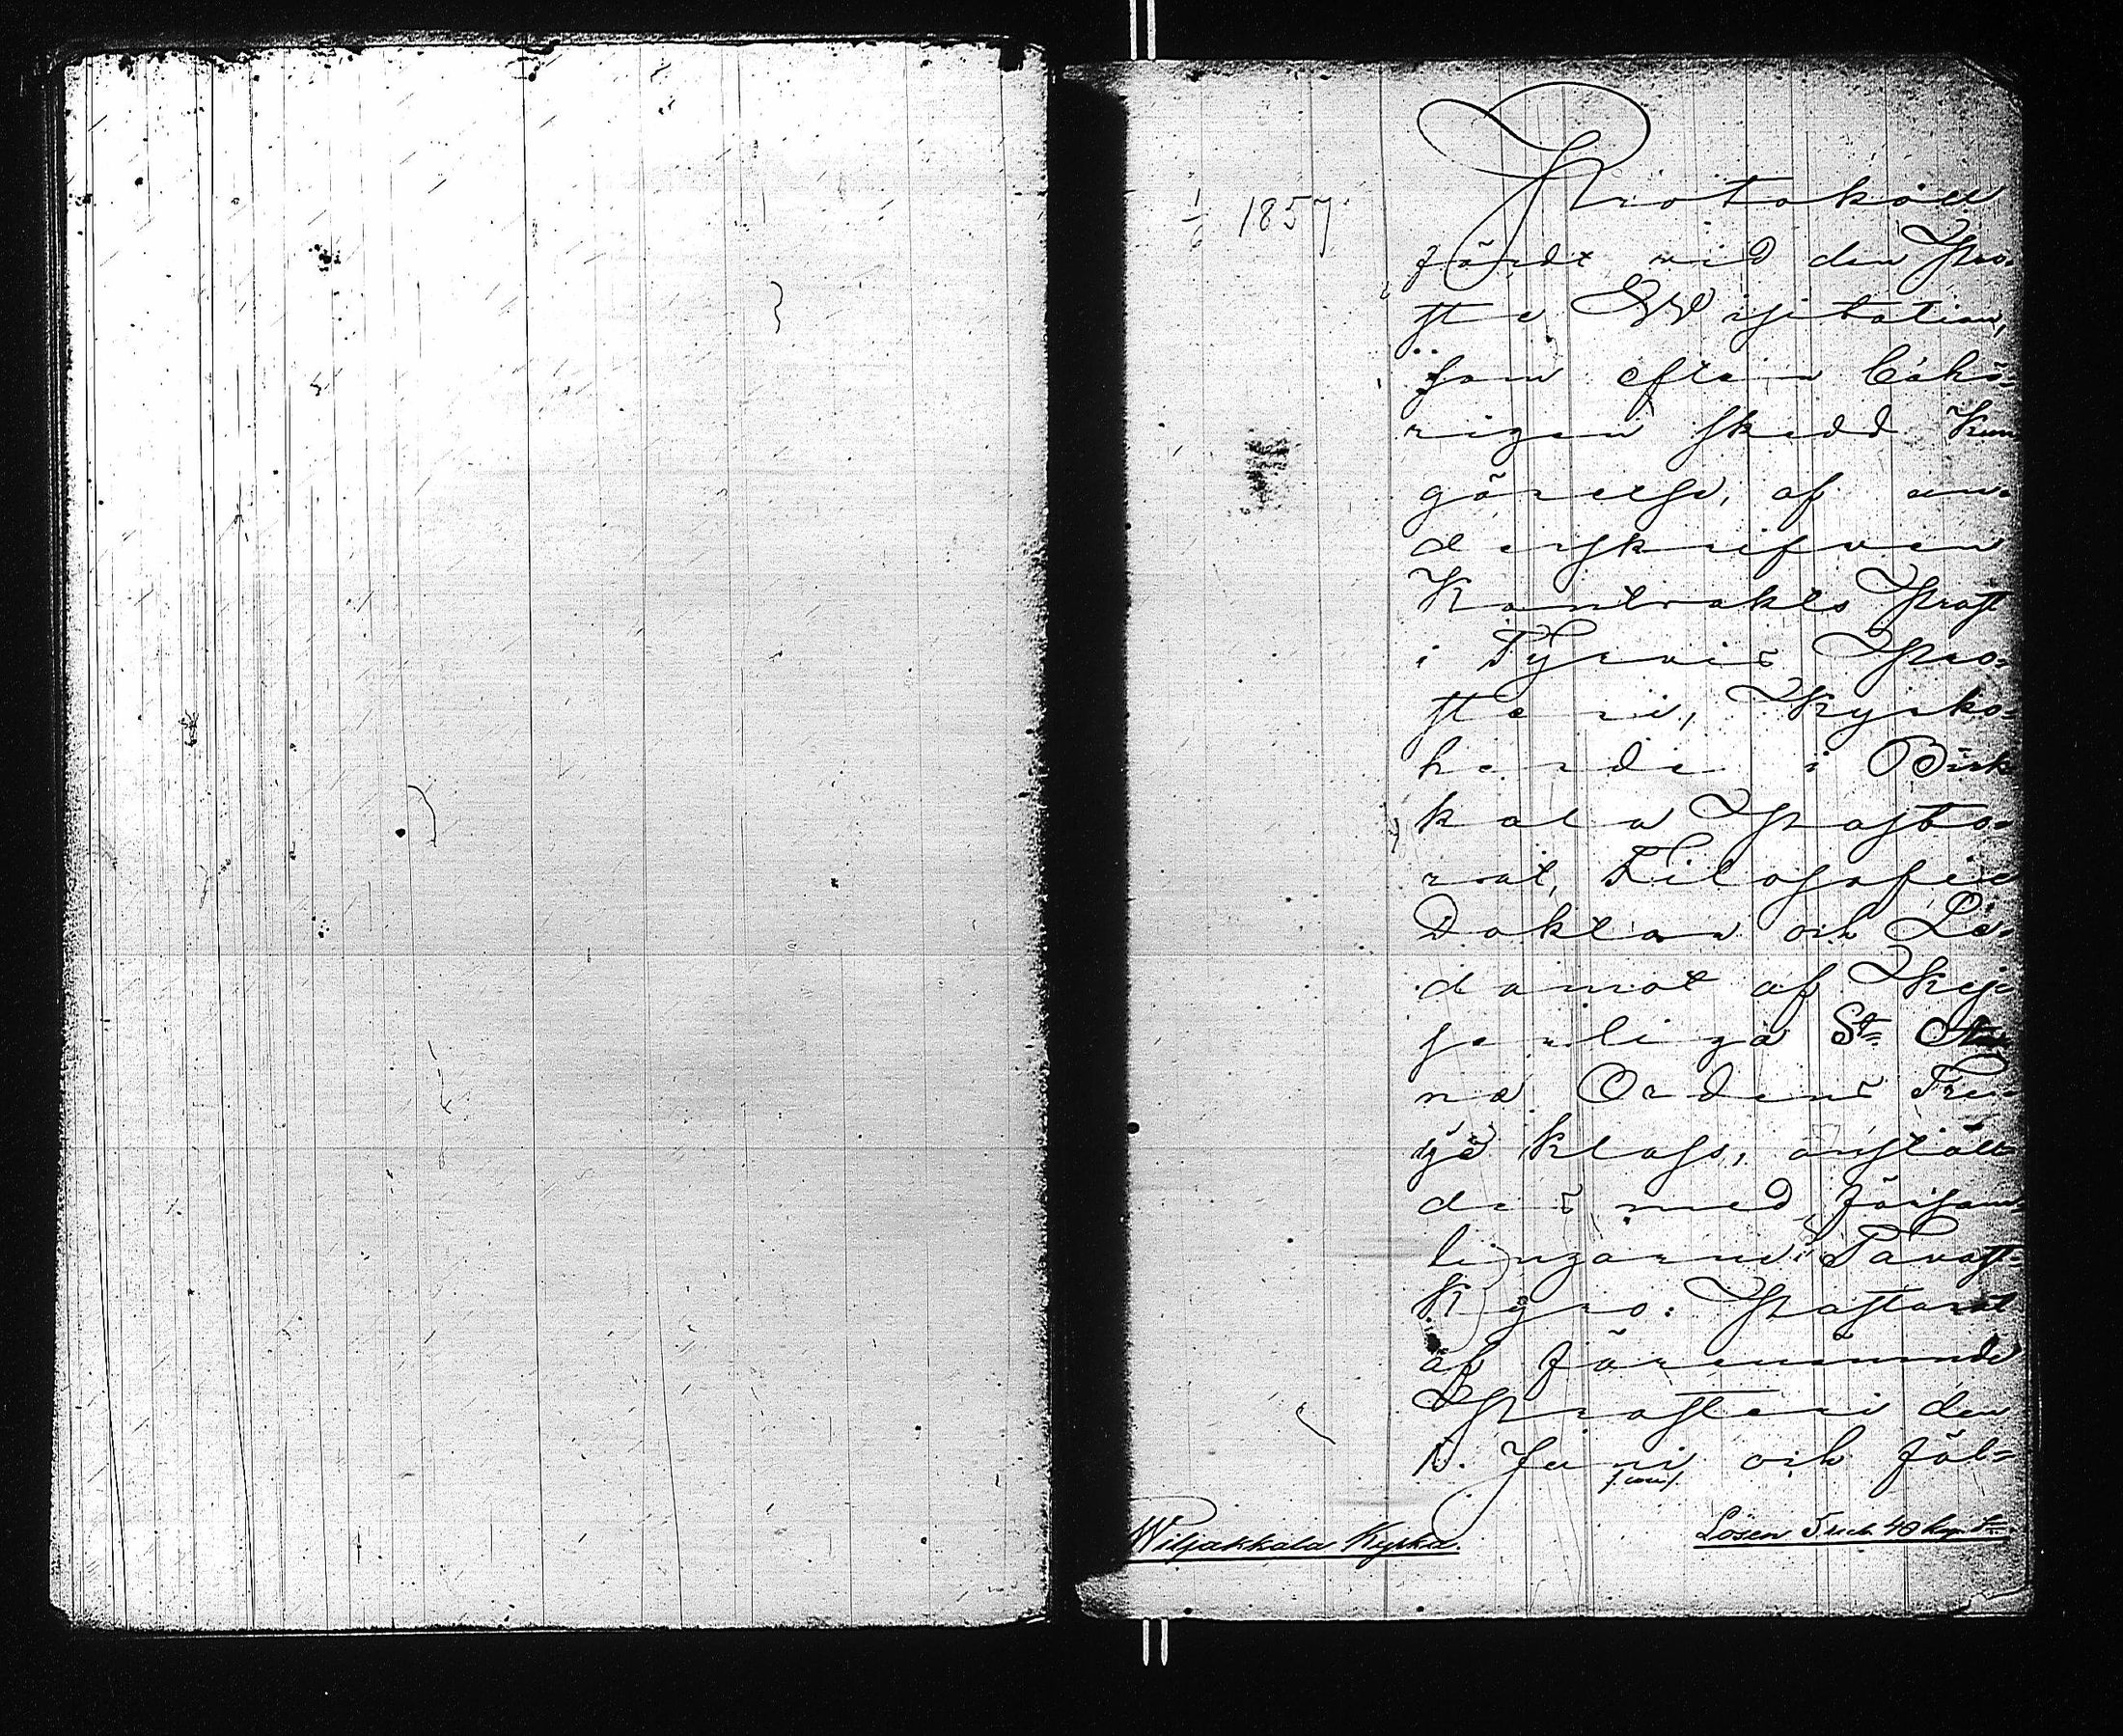 1/6 1857
Protokoll
fördt vid den Pro-
ste Visitation,
som efter behö-
rigen skedd Kun
görelse, af un-
derskrifven
Kontrakts Prost
i Tyrvis Pro-
steri, Kyrko-
herde i Birk
kala Pasto-
rat, Filosofie
Doktor och Le-
damot af Kej
serliga St. An
na Ordens Tre-
dje klass, anställ
des med församl
lingarne i Tavast-
Kyro Pastorat
af förenämnde
Prosteri den
1. Juni och föl-
Wiljakkala Kyrka.
Lösen 5 rub. 40 kop. Sr.